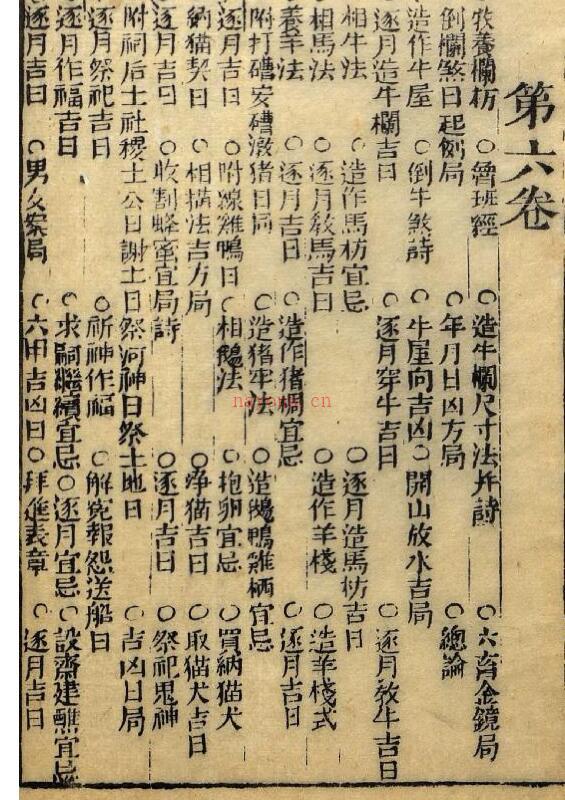 第六卷
牧養欄枋 ○魯班經 ○造牛欄尺寸法并詩 ○六畜金鏡局
倒欄煞日起例局 ○年月日凶方局 ○總論
造作牛屋 ○倒牛煞詩 ○牛屋向吉凶 ○開山放水吉局
逐月造牛欄吉日 ○逐月穿牛吉日 ○逐月教牛吉日
相牛法 ○造作馬枋宜忌 ○逐月造馬枋吉日
相馬法 ○逐月教馬吉日 ○造作羊棧 ○造羊棧式
養羊法 ○逐月吉日 ○造作猪椆宜忌 ○逐月吉日
附打磘安磘潡猪日局 ○造猪牢法 ○造鵝鴨雞栖宜忌
逐月吉日 ○附線雞鴨日 ○相鵝法 ○抱卵宜忌 ○買納猫犬
納猫契日 ○相猫法吉方局 ○淨猫吉日 ○取猫犬吉日
逐月吉日 ○收割蜂蜜宜局詩 ○逐月吉日 ○祭祀鬼神
附祠后土社稷土公日謝土日祭河神日祭土地日 ○吉凶日局
逐月祭祀吉日 ○祈神作福 ○解冤報怨送船日
逐月作福吉日 ○求嗣繼續宜忌 ○逐月宜忌 ○設齋建醮宜忌
逐月吉日 ○男女案局 ○六甲吉凶日 ○拜進表章 ○逐月吉日
nayona.cn